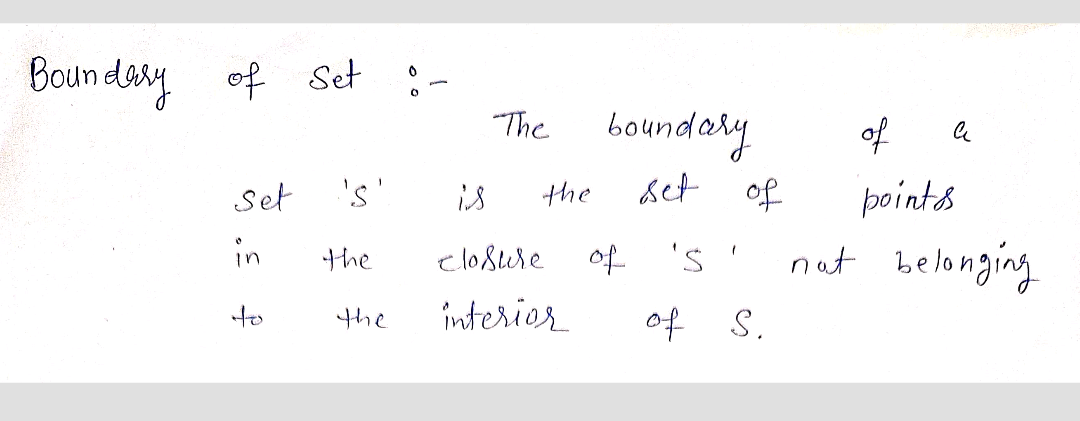 Boundary of Set :-
The boundary of a
set 's' is the set of points
in the closure of 's' not belonging
to the interior of S.